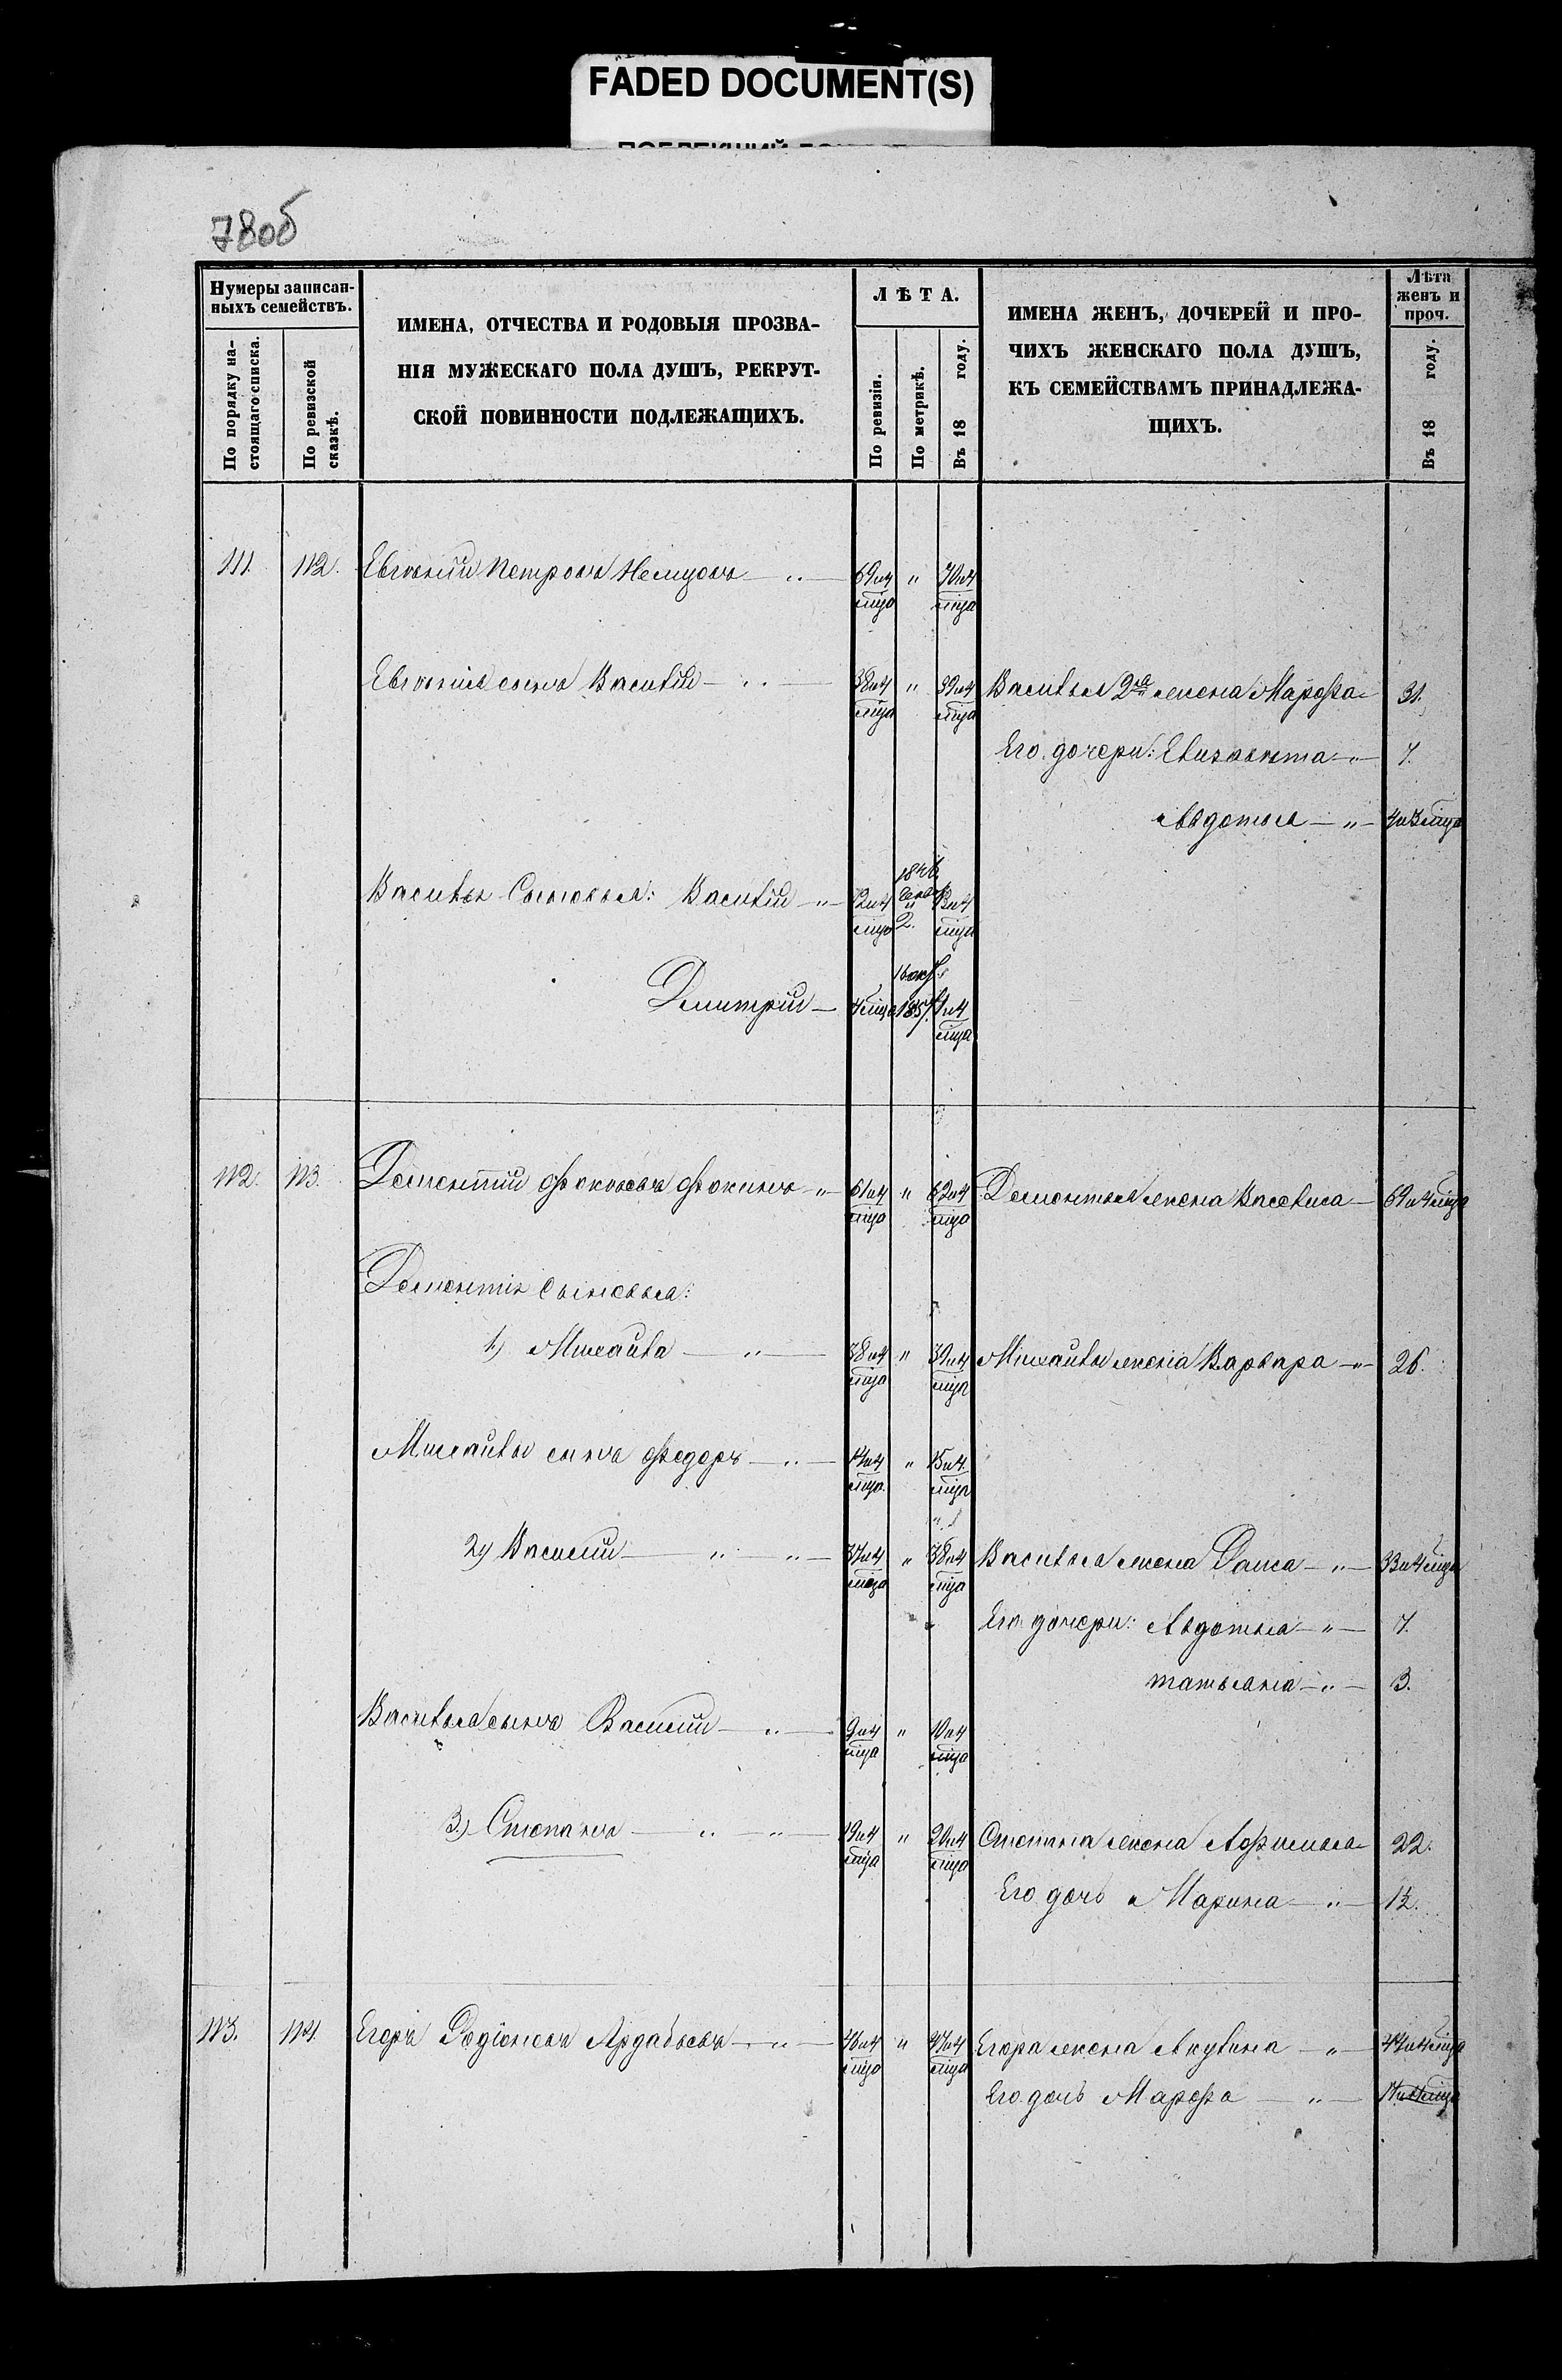 FADED DOCUMENT(S)
780б
Нумеры записан-
ныхъ семействъ.
По порядку на-
стоящаго списка.
По ревизской
сказкѣ.
ИМЕНА, ОТЧЕСТВА И РОДОВЫЯ ПРОЗВА-
НІЯ МУЖЕСКАГО ПОЛА ДУШЪ, РЕКРУТ-
СКОЙ ПОВИННОСТИ ПОДЛЕЖАЩИХЪ.
ЛѢТА.
По ревизіи.
По метрикѣ.
Въ 18 году.
ИМЕНА ЖЕНЪ, ДОЧЕРЕЙ И ПРО-
ЧИХЪ ЖЕНСКАГО ПОЛА ДУШЪ,
КЪ СЕМЕЙСТВАМЪ ПРИНАДЛЕЖА-
ЩИХЪ.
Лѣта
женъ и
проч.
Въ 18 году.
111. 112. Петровъ 69 и 4 мца " 70 и 4 мца
сынъ Василій 38 и 4 мца " 39 и 4 мца Василья 2я жена Марфа 31.
Его дочери: Елизавета " 7.
Авдотья " 4 и 3 мца
Василья Сыновья: Василій " 12 и 4 мца 2. 13 и 4 мца
Дмитрій 4 мца 1857 1 и 4 мца
112. 113. Дементій Фокинъ " 61 и 4 мца " 62 и 4 мца Дементья жена Васелиса 69 и 4 мца
Дементія сыновья:
1) Михаила " 38 и 4 мца " 39 и 4 мца Михаилы жена Варвара " 26.
Михаилы сынъ Федоръ " 14 и 4 мца " 15 и 4 мца
2) Василій " " 37 и 4 мца " 38 и 4 мца Василья жена " 33 и 4 мца
Его дочери: Авдотья " 7.
татьяна " 3.
Василья сынъ Василій " 9 и 4 мца " 10 и 4 мца
3) Степанъ " " 19 и 4 мца " 20 и 4 мца Степана жена Афимья 22.
Его дочь Марина " 1½.
113. 114. Егоръ Родіоновъ Ардабьевъ " 46 и 4 мца " 47 и 4 мца Егора жена Акулина " 44 и 4 мца
Его дочь Марфа "